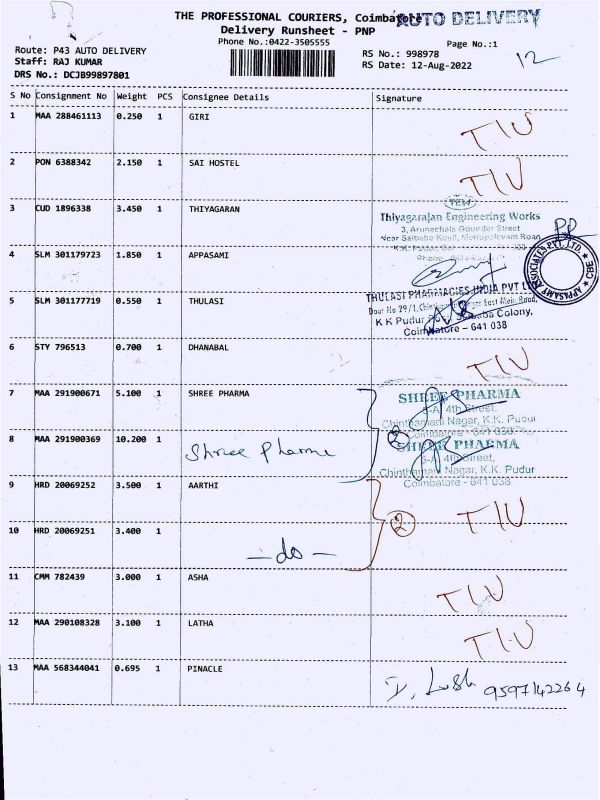 THE PROFESSIONAL COURIERS, Coimbatore
AUTO DELIVERY
Delivery Runsheet - PNP
Phone No.:0422-3505555
Page No.:1
Route: P43 AUTO DELIVERY
RS No.: 998978
12
Staff: RAJ KUMAR
RS Date: 12-Aug-2022
DRS No.: DCJB99897801
S No Consignment No Weight PCS Consignee Details Signature
1 MAA 288461113 0.250 1 GIRI TIU
2 PON 6388342 2.150 1 SAI HOSTEL TIU
3 CUD 1896338 3.450 1 THIYAGARAN
TEW
Thiyagarajan Engineering Works
3, Arunachala Gounder Street
Near Saibaba Kovil,
4 SLM 301179723 1.850 1 APPASAMI
APPASAMY ASSOCIATES PVT. LTD. CBE
5 SLM 301177719 0.550 1 THULASI
THULASI PHARMACIES INDIA PVT LTD
Door No 29/1, East Main Road,
K K Pudur Saibaba Colony,
Coimbatore - 641 038
6 STY 796513 0.700 1 DHANABAL TIU
7 MAA 291900671 5.100 1 SHREE PHARMA
SHREE PHARMA
4th Street,
Chinthamani Nagar, K.K. Pudur
Coimbatore - 641 038
8 MAA 291900369 10.200 1 Shree Pharma
2
SHREE PHARMA
4th Street,
Chinthamani Nagar, K.K. Pudur
Coimbatore - 641 038
9 HRD 20069252 3.500 1 AARTHI TIU
2
10 HRD 20069251 3.400 1 - do -
11 CMM 782439 3.000 1 ASHA TIU
12 MAA 290108328 3.100 1 LATHA TIU
13 MAA 568344041 0.695 1 PINACLE 9597142264